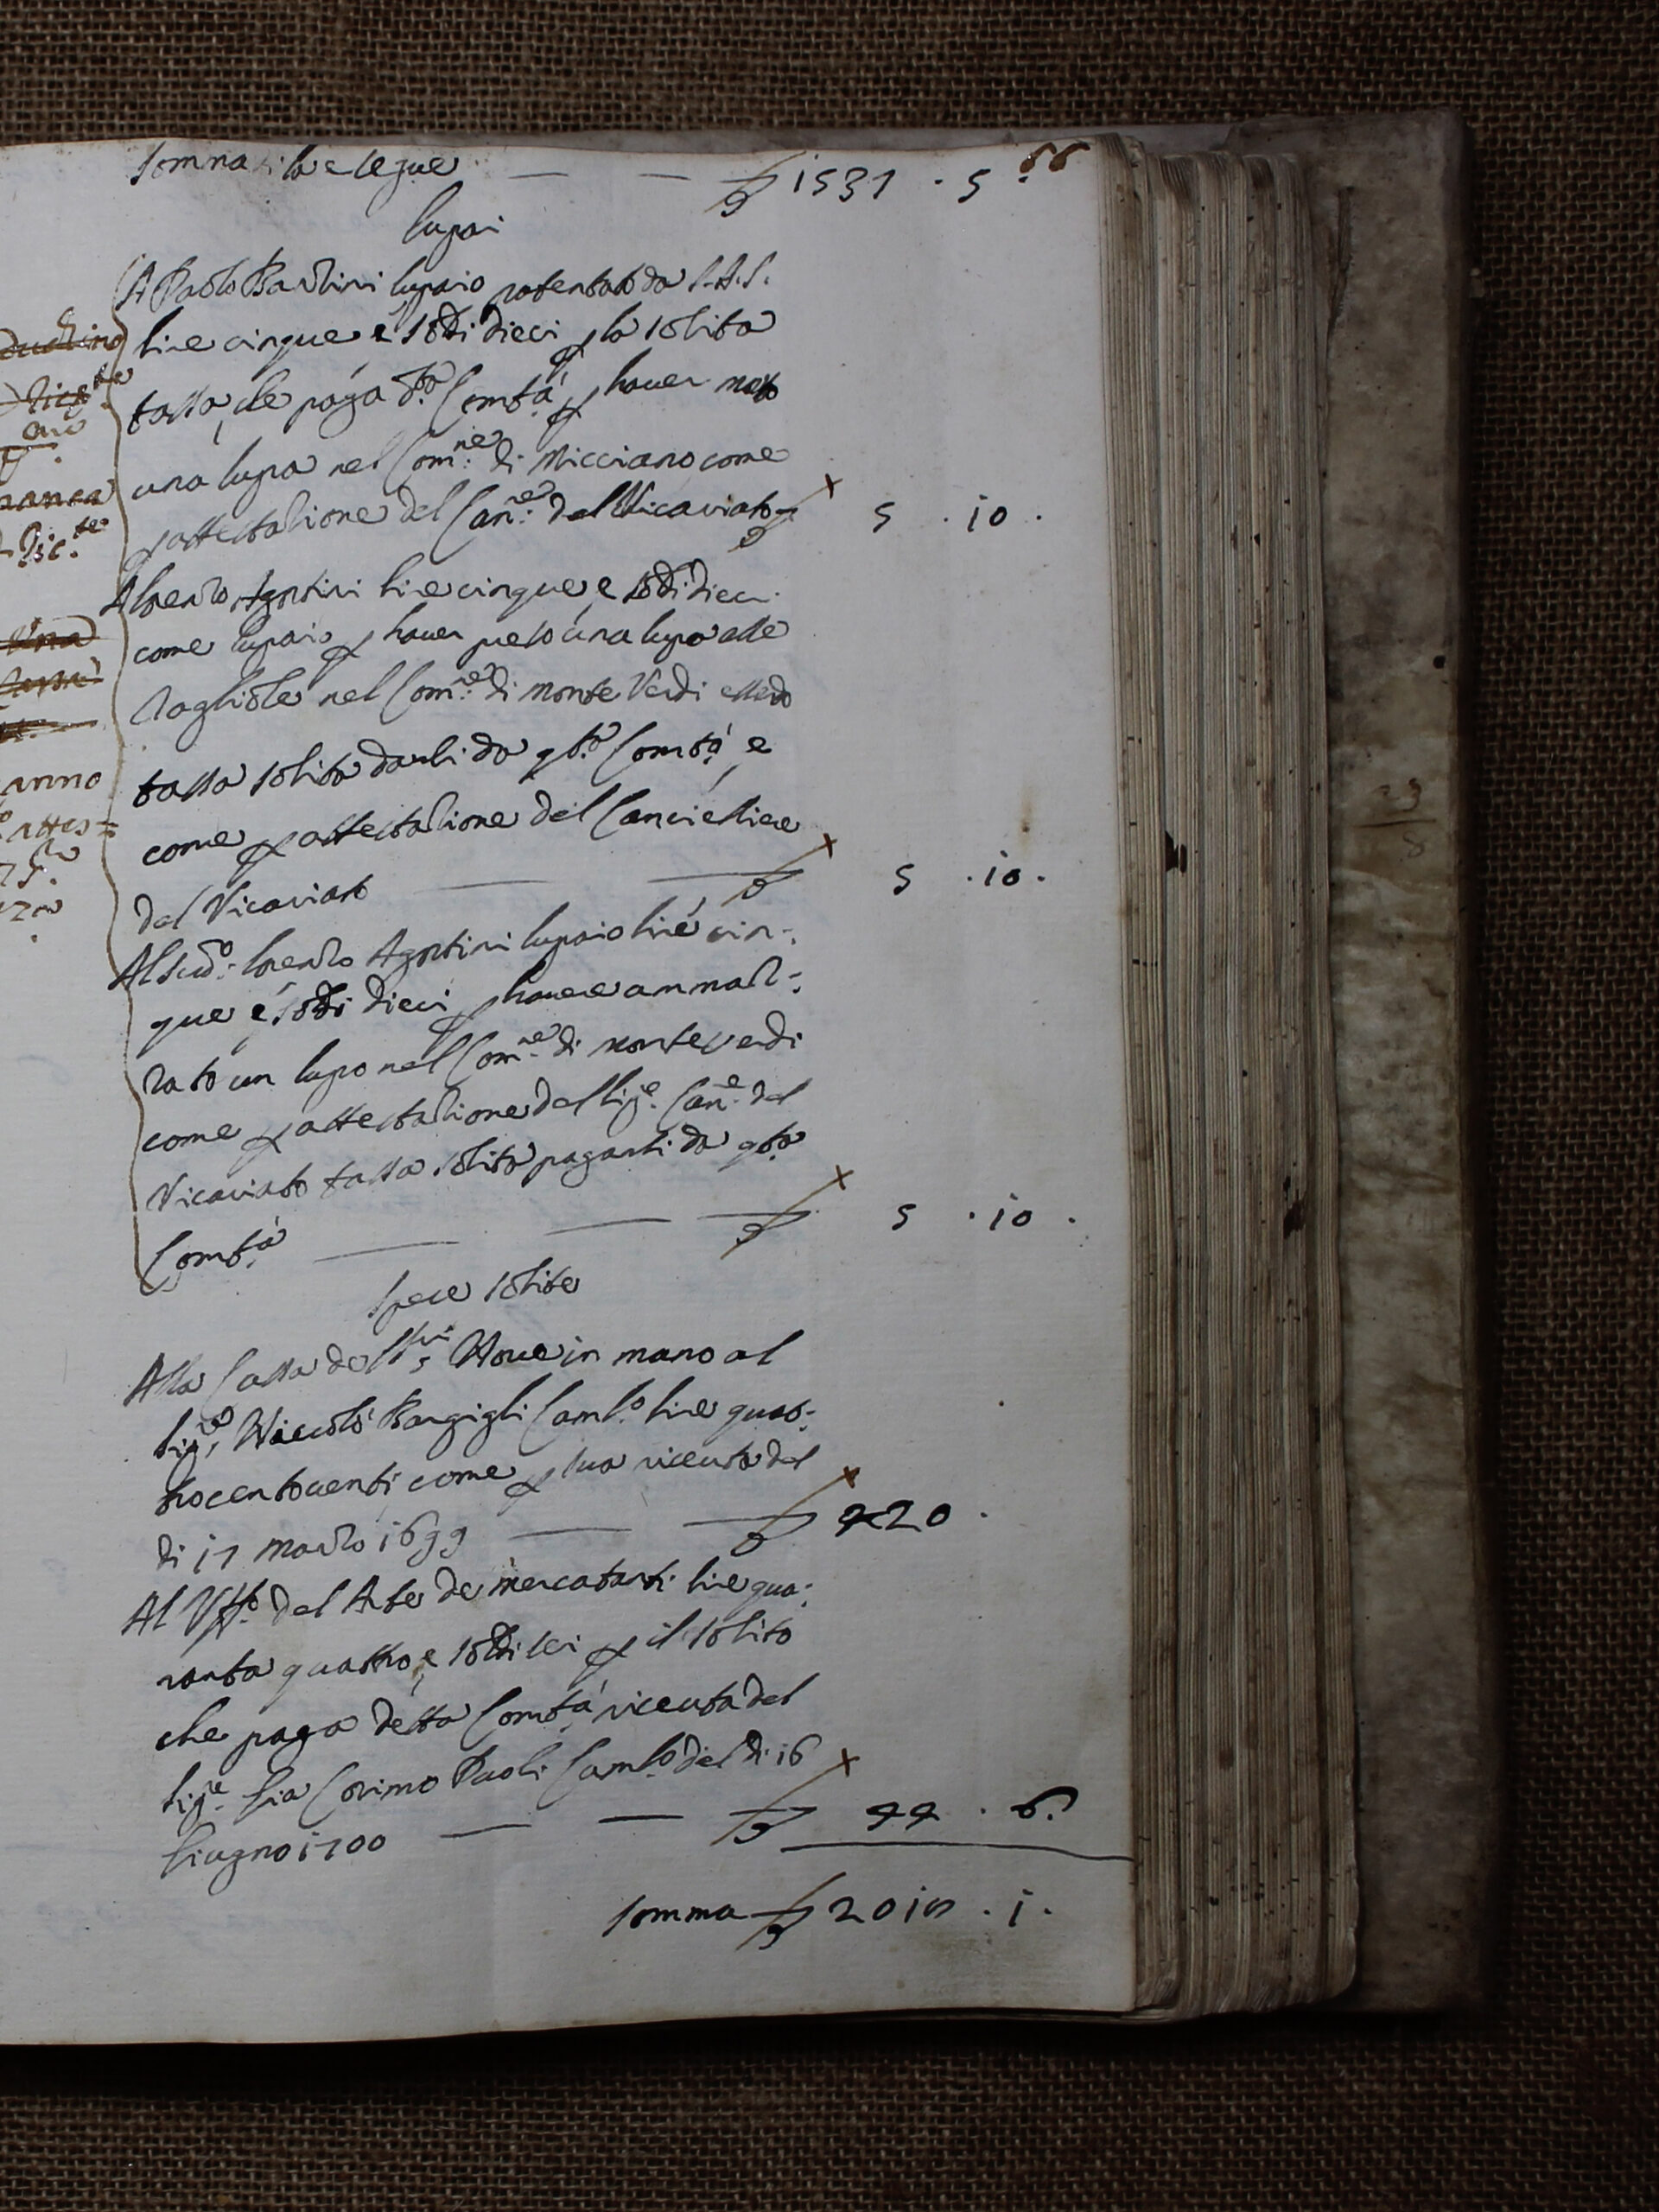 Somma si là e segue — — £ 1531 . 5 .
66
lupai
A Paolo Bardini lupaio patentato da S.A.S.
lire cinque e soldi dieci p la solita
tassa che paga d.ta Com.tà p hauer morto
una lupa nel Com.ne di Micciano come
p attestazione del Can.re del Vicariato £ 5 . 10 .
A lorenzo Agostini lire cinque e soldi dieci
come lupaio p hauer preso una lupa alle
tagliole nel Com.ne di Monte Verdi essendo
tassa solita darli da q.ta Com.tà e
come p attestazione del Cancelliere
del Vicariato — — £ 5 . 10 .
Al sud.o lorenzo Agostini lupaio lire cin-
que e soldi dieci p hauere ammaz-
zato un lupo nel Com.ne di Monteverdi
come p attestazione del Sig.e Can.e del
Vicariato tassa solita pagarsi da q.ta
Com.tà — — £ 5 . 10 .
Spese solite
Alla Cassa dell SS.ri Noue in mano al
Sig.re Niccolò Bargigli Cam.lo lire quat-
trocentouenti come p sua riceuta del
di 17 Marzo 1699 — — £ 420 .
Al Uff.o del Arte de Mercatanti lire qua-
ranta quattro e soldi sei p il solito
che paga detta Com.tà riceuta del
Sig.e Gia Cosimo Paoli Cam.lo del di 16
Giugno 1700 — — £ 44 . 6 .
Somma £ 2012 . 1 .
anno